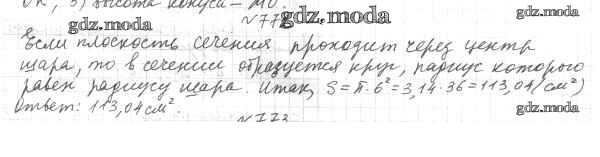 ОК, 3) высота конуса – МО.
N77 gdz.moda
Если плоскость сечения проходит через центр
шара, то в сечении образуется круг, радиус которого
равен радиусу шара. Итак, S = π · 6² = 3,14 · 36 = 113,04 (см²)
Ответ: 113,04 см².
gdz.moda
gdz.moda
N773